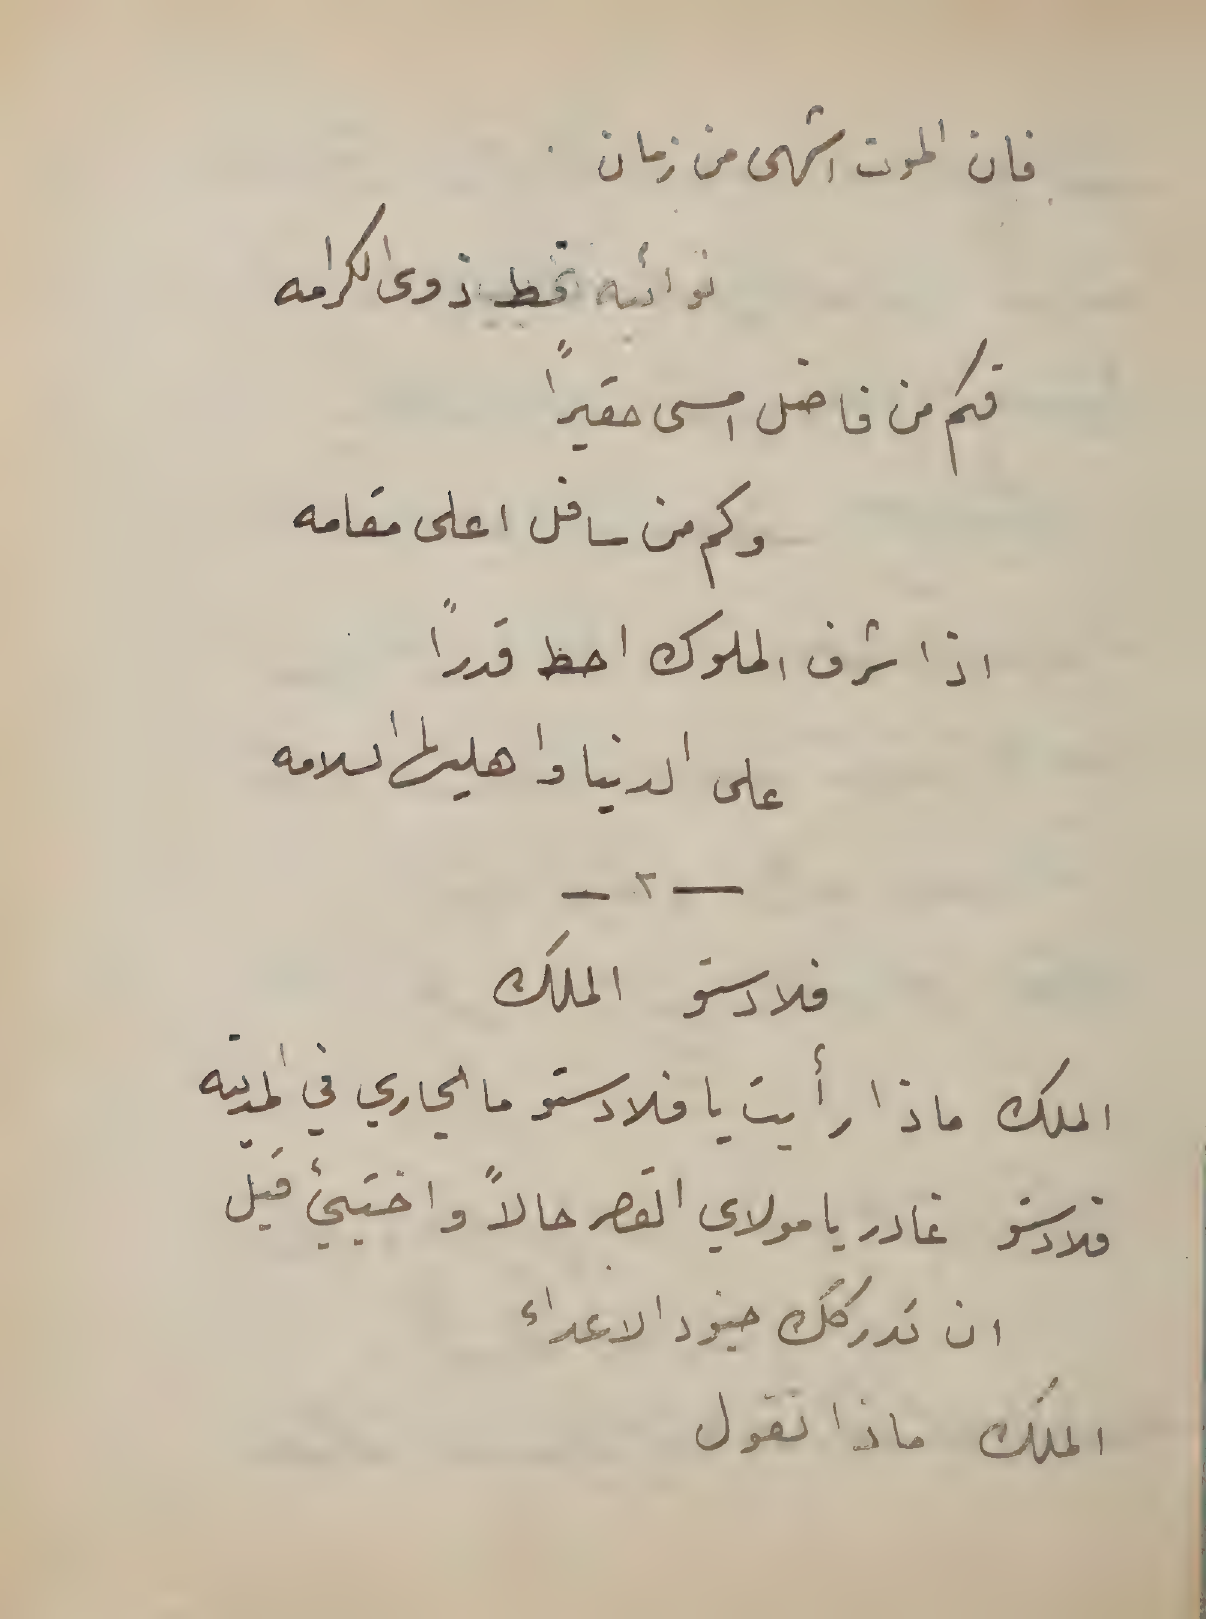 فان الموت اشهى من زمان
نوائبه تحط ذوى الكرامه
فكم من فاضل امسى حقيراً
وكم من سافل اعلى مقامه
اذا شرف الملوك احط قدراً
على الدنيا واهليها السلامه
— ٢ —
فلادستو الملك
الملك ماذا رأيت يا فلادستو ما الجاري في المدينه
فلادستو غادر يا مولاي القصر حالاً واختبئ قبل
ان تدركك جنود الاعداء
الملك ماذا تقول